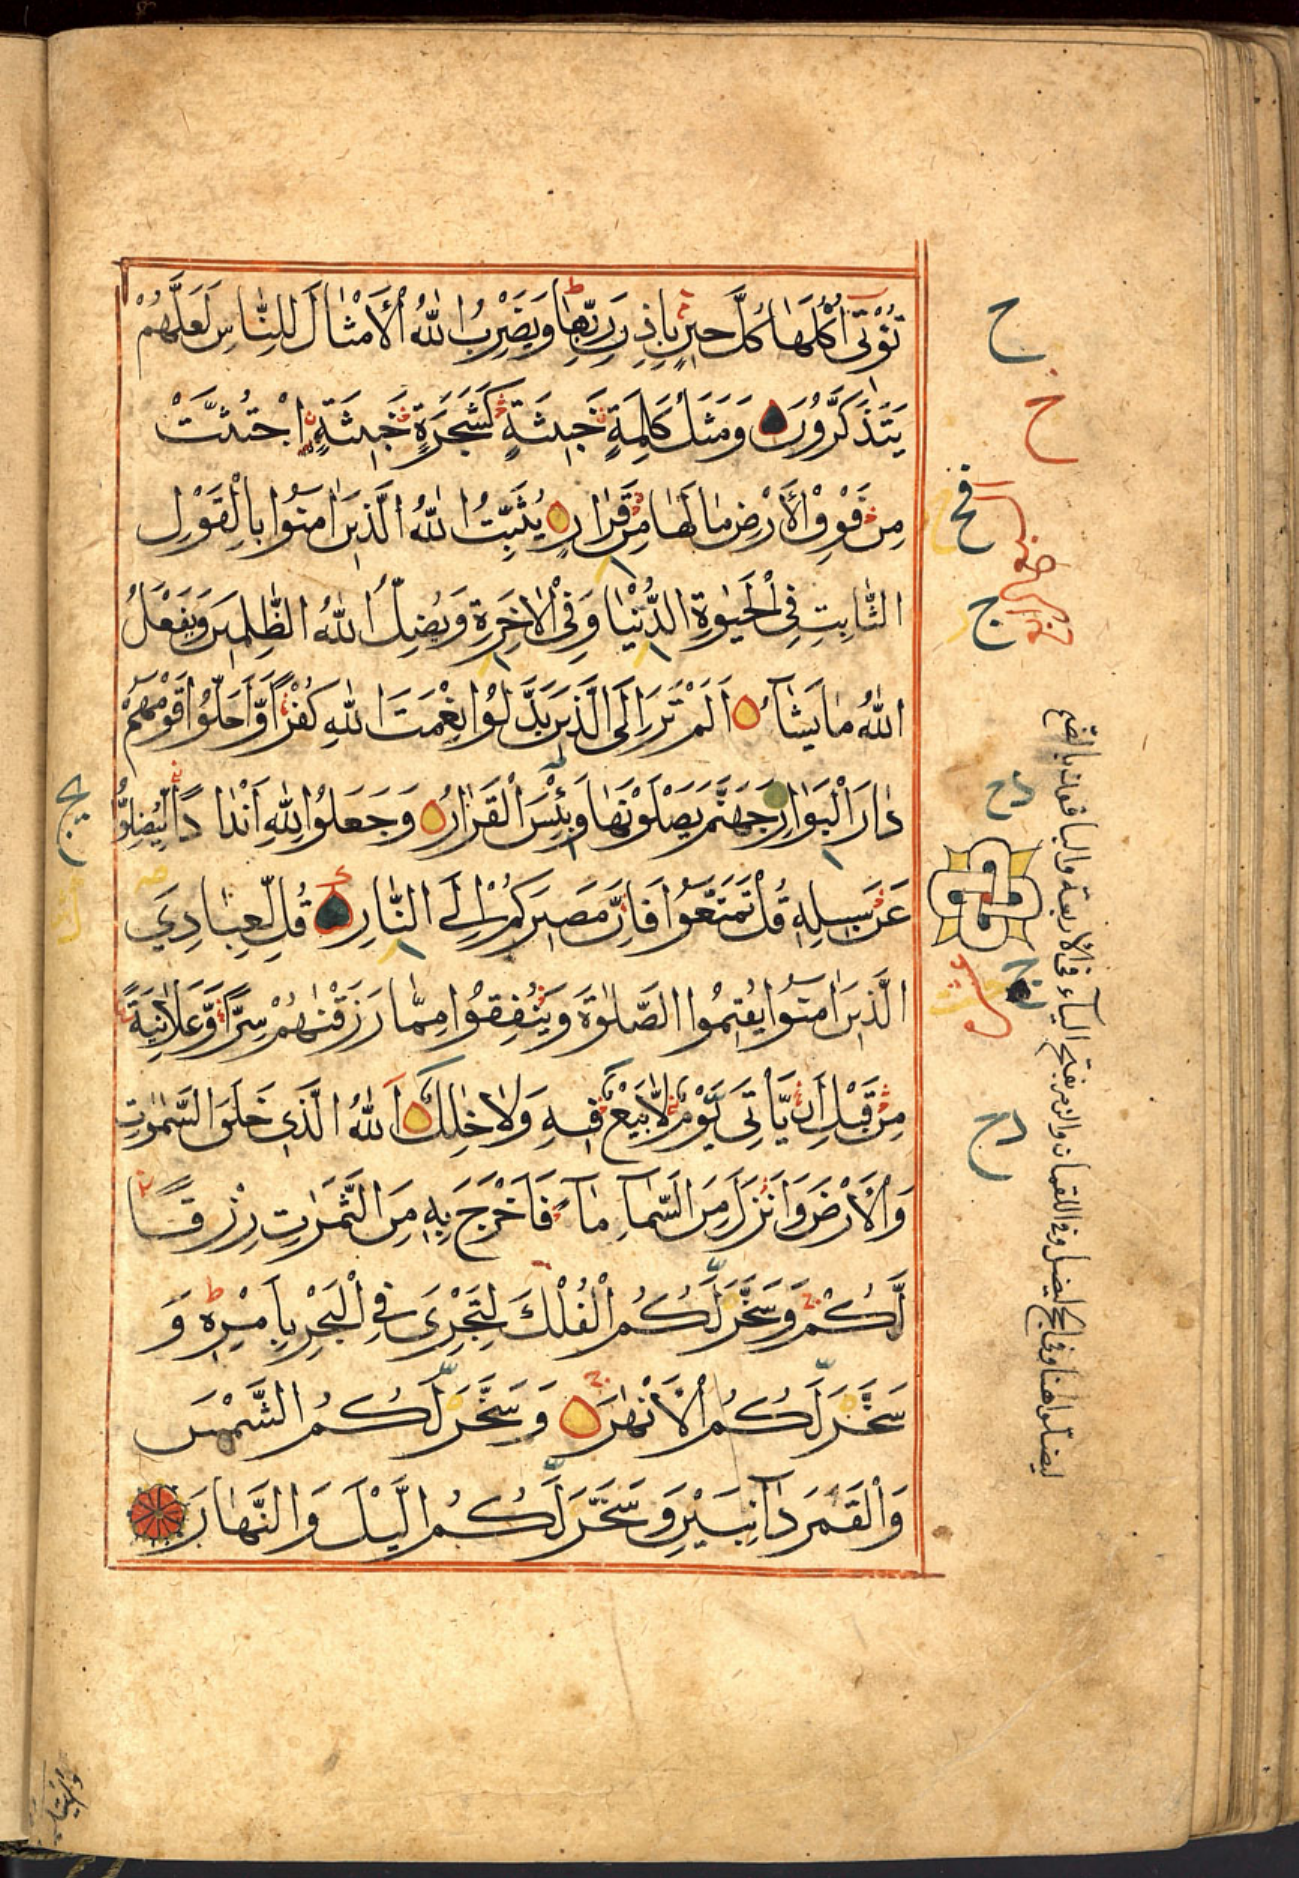 تُؤْتِىٓ اُكُلَهَا كُلَّ حِينٍ بِاِذْنِ رَبِّهَا وَيَضْرِبُ اللّٰهُ الْاَمْثَالَ لِلنَّاسِ لَعَلَّهُمْ
يَتَذَكَّرُونَ وَمَثَلُ كَلِمَةٍ خَبِيثَةٍ كَشَجَرَةٍ خَبِيثَةٍ اجْتُثَّتْ
مِنْ فَوْقِ الْاَرْضِ مَا لَهَا مِنْ قَرَارٍ يُثَبِّتُ اللّٰهُ الَّذِينَ اٰمَنُوا بِالْقَوْلِ
الثَّابِتِ فِى الْحَيٰوةِ الدُّنْيَا وَفِى الْاٰخِرَةِ وَيُضِلُّ اللّٰهُ الظّٰلِمِينَ وَيَفْعَلُ
اللّٰهُ مَا يَشَآءُ اَلَمْ تَرَ اِلَى الَّذِينَ بَدَّلُوا نِعْمَتَ اللّٰهِ كُفْرًا وَّاَحَلُّوا قَوْمَهُمْ
دَارَ الْبَوَارِ جَهَنَّمَ يَصْلَوْنَهَا وَبِئْسَ الْقَرَارُ وَجَعَلُوا لِلّٰهِ اَنْدَادًا لِّيُضِلُّوا
عَنْ سَبِيلِهِ قُلْ تَمَتَّعُوا فَاِنَّ مَصِيرَكُمْ اِلَى النَّارِ قُلْ لِّعِبَادِيَ
الَّذِينَ اٰمَنُوا يُقِيمُوا الصَّلٰوةَ وَيُنْفِقُوا مِمَّا رَزَقْنٰهُمْ سِرًّا وَّعَلَانِيَةً
مِنْ قَبْلِ اَنْ يَّاْتِىَ يَوْمٌ لَّا بَيْعٌ فِيهِ وَلَا خِلٰلٌ اَللّٰهُ الَّذِى خَلَقَ السَّمٰوٰتِ
وَالْاَرْضَ وَاَنْزَلَ مِنَ السَّمَآءِ مَآءً فَاَخْرَجَ بِهِ مِنَ الثَّمَرٰتِ رِزْقًا
لَّكُمْ وَسَخَّرَ لَكُمُ الْفُلْكَ لِتَجْرِىَ فِى الْبَحْرِ بِاَمْرِهِ وَ
سَخَّرَ لَكُمُ الْاَنْهٰرَ وَسَخَّرَ لَكُمُ الشَّمْسَ
وَالْقَمَرَ دَآئِبَيْنِ وَسَخَّرَ لَكُمُ الَّيْلَ وَالنَّهَارَ